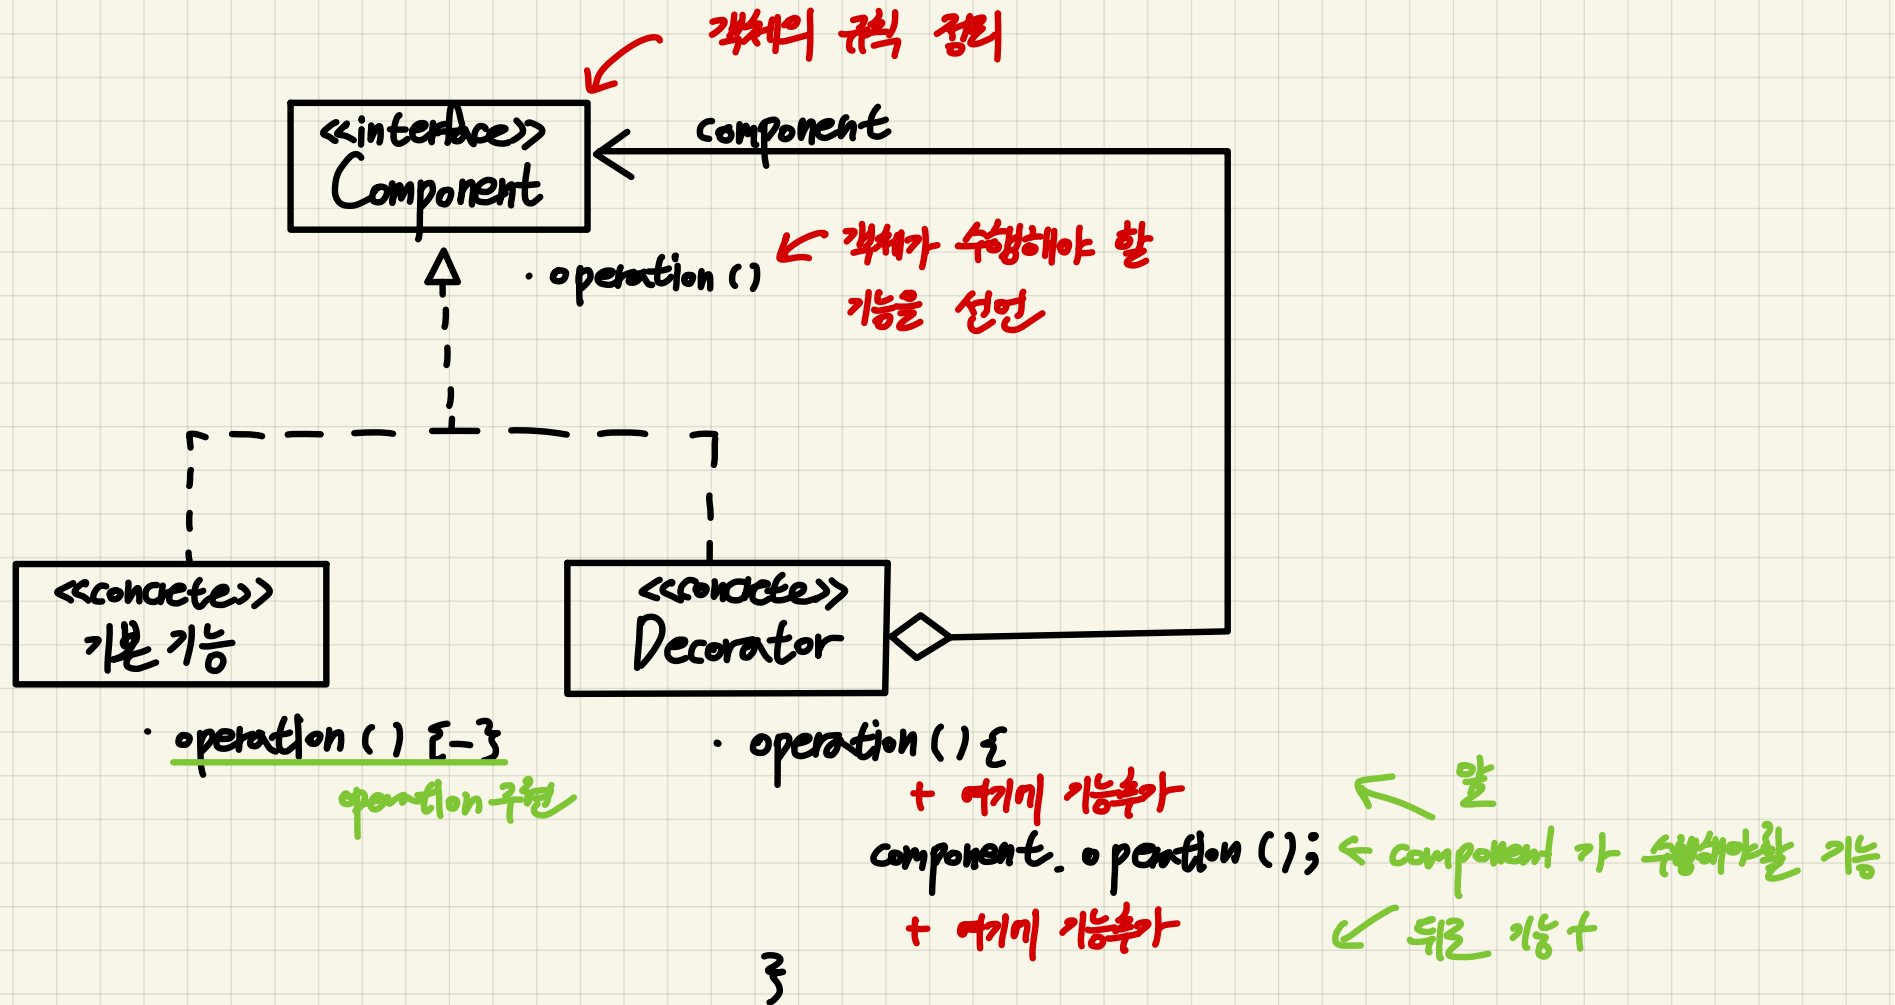 객체의 규칙 정리
<<interface>>
Component
component
· operation ()
객체가 수행해야 할
기능을 선언
<<concrete>>
기본 기능
<<concrete>>
Decorator
· operation () {-}
operation 구현
· operation () {
+ 여기에 기능추가
앞
component . operation () ;
component 가 수행해야할 기능
+ 여기에 기능추가
뒤로 기능 +
}